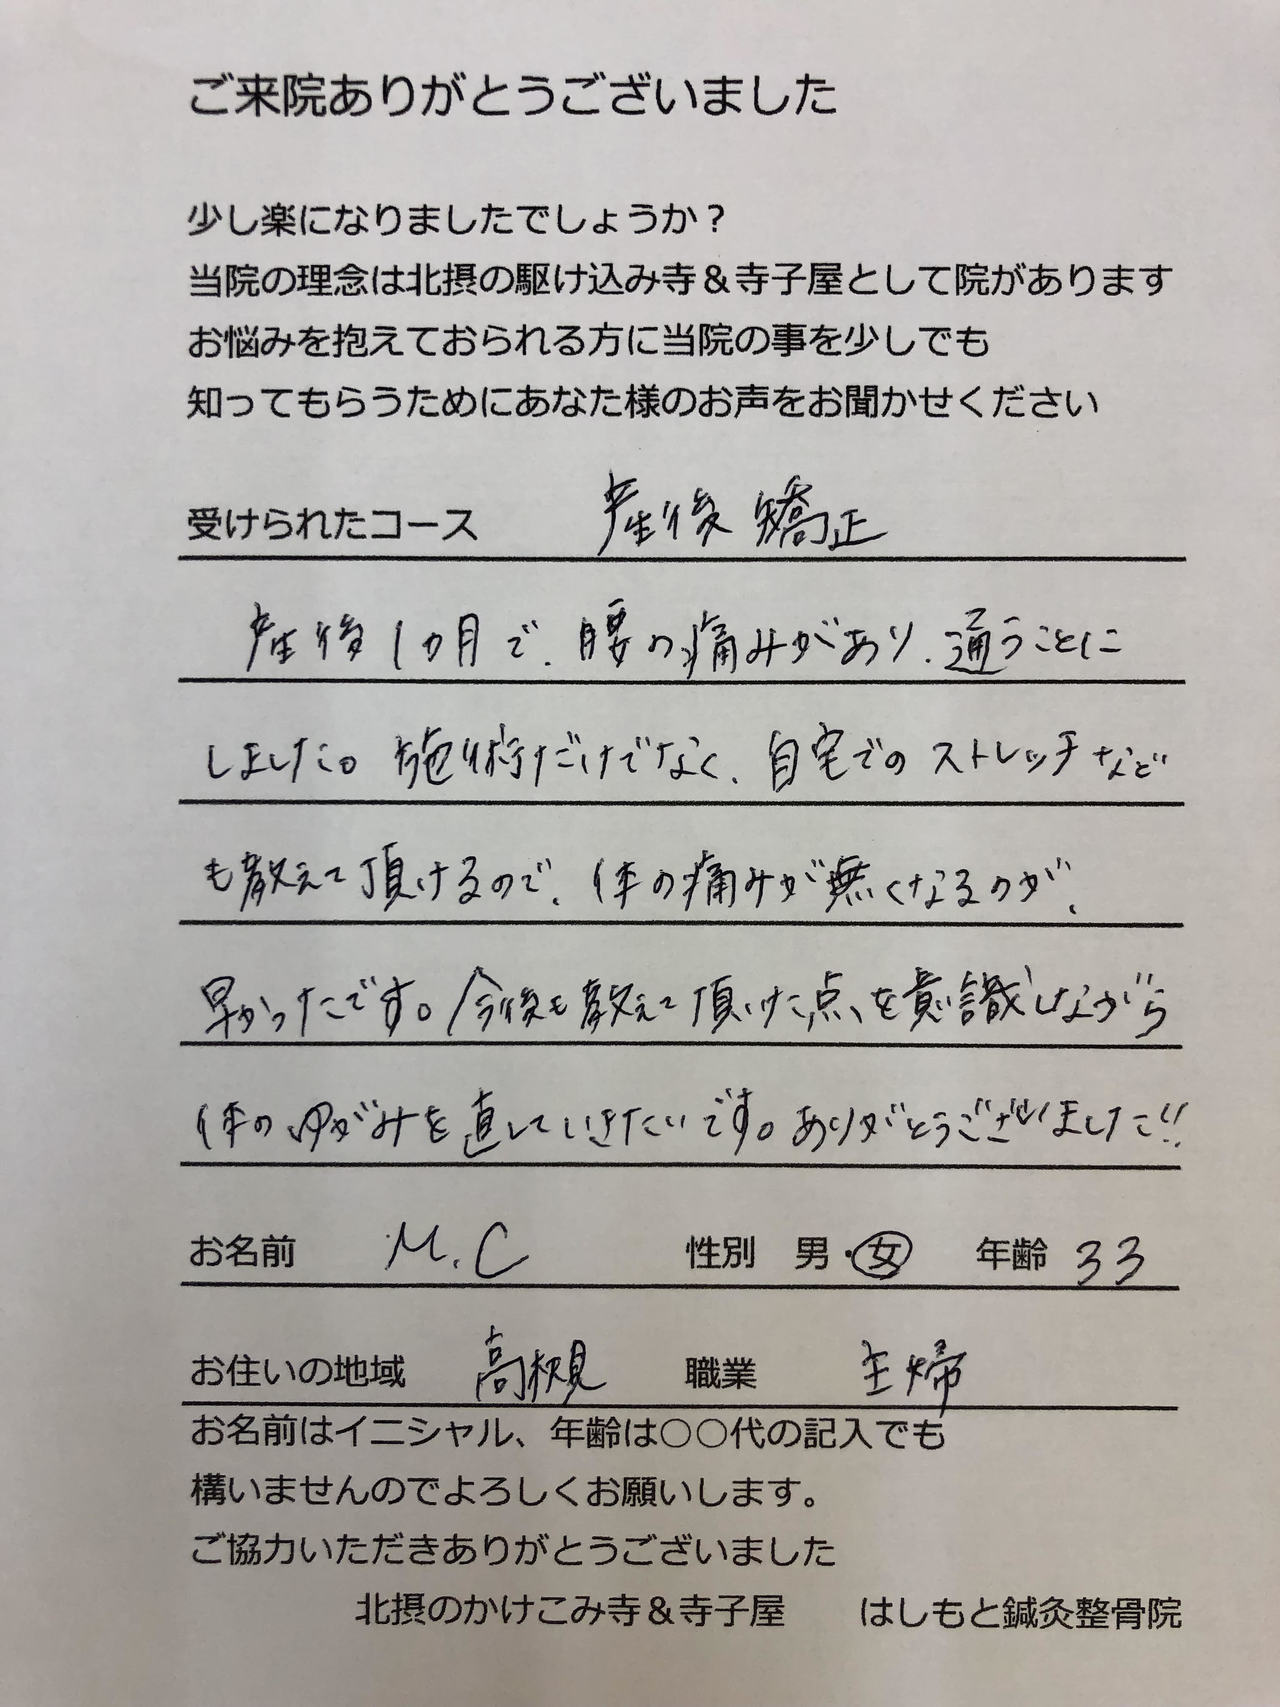 ご来院ありがとうございました
少し楽になりましたでしょうか？
当院の理念は北摂の駆け込み寺＆寺子屋として院があります
お悩みを抱えておられる方に当院の事を少しでも
知ってもらうためにあなた様のお声をお聞かせください
受けられたコース 産後矯正
産後1カ月で、腰の痛みがあり、通うことに
しました。施術だけでなく、自宅でのストレッチなど
も教えて頂けるので、体の痛みが無くなるのが、
早かったです。今後も教えて頂いた点を意識しながら
体のゆがみを直していきたいです。ありがとうございました!!
お名前 M.C 性別 男・女 年齢 33
お住いの地域 高槻 職業 主婦
お名前はイニシャル、年齢は○○代の記入でも
構いませんのでよろしくお願いします。
ご協力いただきありがとうございました
北摂のかけこみ寺＆寺子屋 はしもと鍼灸整骨院